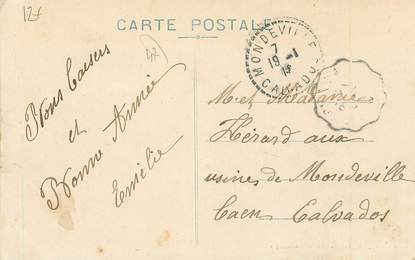 12€
CARTE POSTALE
47
Bons baisers
et
Bonne Année
Emélie
MONDEVILLE
7
19-1
CALVADOS
M et Madame
Hérard aux
usines de Mondeville
Caen Calvados